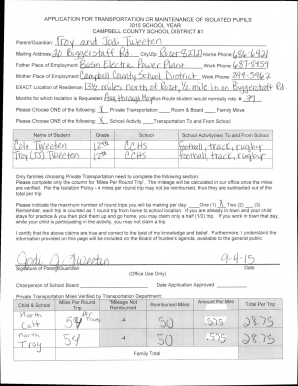 APPLICATION FOR TRANSPORTATION OR MAINTENANCE OF ISOLATED PUPILS
2015 SCHOOL YEAR
CAMPBELL COUNTY SCHOOL DISTRICT #1
Parent/Guardian: Troy and Jodi Tweeten
Mailing Address: 30 Biggerstaff Rd. City/Zip Rozet 82727 Home Phone 686-6921
Father Place of Employment Basin Electric Power Plant Work Phone 687-8454
Mother Place of Employment Campbell County School District Work Phone
EXACT Location of Residence: 13 1/2 miles north of Rozet, 1/2 mile in on Biggerstaff Rd
Months for which Isolation is Requested Aug through May Route student would normally ride: #
Please Choose ONE of the following: X Private Transportation Room & Board Family Move
Please Choose ONE of following: X School Activity Transportation To and From School
Name of Student Grade School School Activity(ies) To and From School
Colt Tweeten 12th CCHS football, track, rugby
Troy (TJ) Tweeten 12th CCHS football, track, rugby
Only families choosing Private Transportation need to complete the following section:
Please complete only the column for "Miles Per Round Trip". The mileage will be calculated in our office once the miles
are verified. Per the Isolation Policy - 4 miles per round trip may not be reimbursed, thus they are subtracted out of the
total per trip.
Please indicate the maximum number of round trips you will be making per day: One (1) X Two (2) (3)
Remember, each trip is counted as 1 round trip from home to school location. If you are already in town and your child
stays for practice & you then pick them up and go home, you may claim only a half (1/2) trip. If you work in town that day,
while your child is participating in the activity, you may not claim a trip.
I certify that the above claims are true and correct to the best of my knowledge and belief. Furthermore, I understand the
information provided on this page will be included on the Board of trustee's agenda, available to the general public.
Jodi J Tweeten 9-4-15
Signature of Parent/Guardian Date
(Office Use Only)
Chairperson of School Board Date Application Approved
Private Transportation Miles Verified by Transportation Department:
Child & School Miles Per Round Trip *Mileage Not Reimbursed Reimbursed Miles Amount Per Mile Total Per Trip
North Colt 54 Per Trans -4 50 .575 28.75
North Troy 54 -4 50 .575 28.75
Family Total